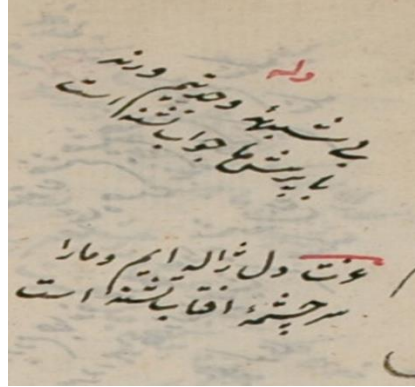 وله
بی شبههٔ وحدتیم ورنه
با پرسش ما جواب تشنه است
عزت دل ژاله ایم و ما را
سرچشمهٔ افتاب تشنه است